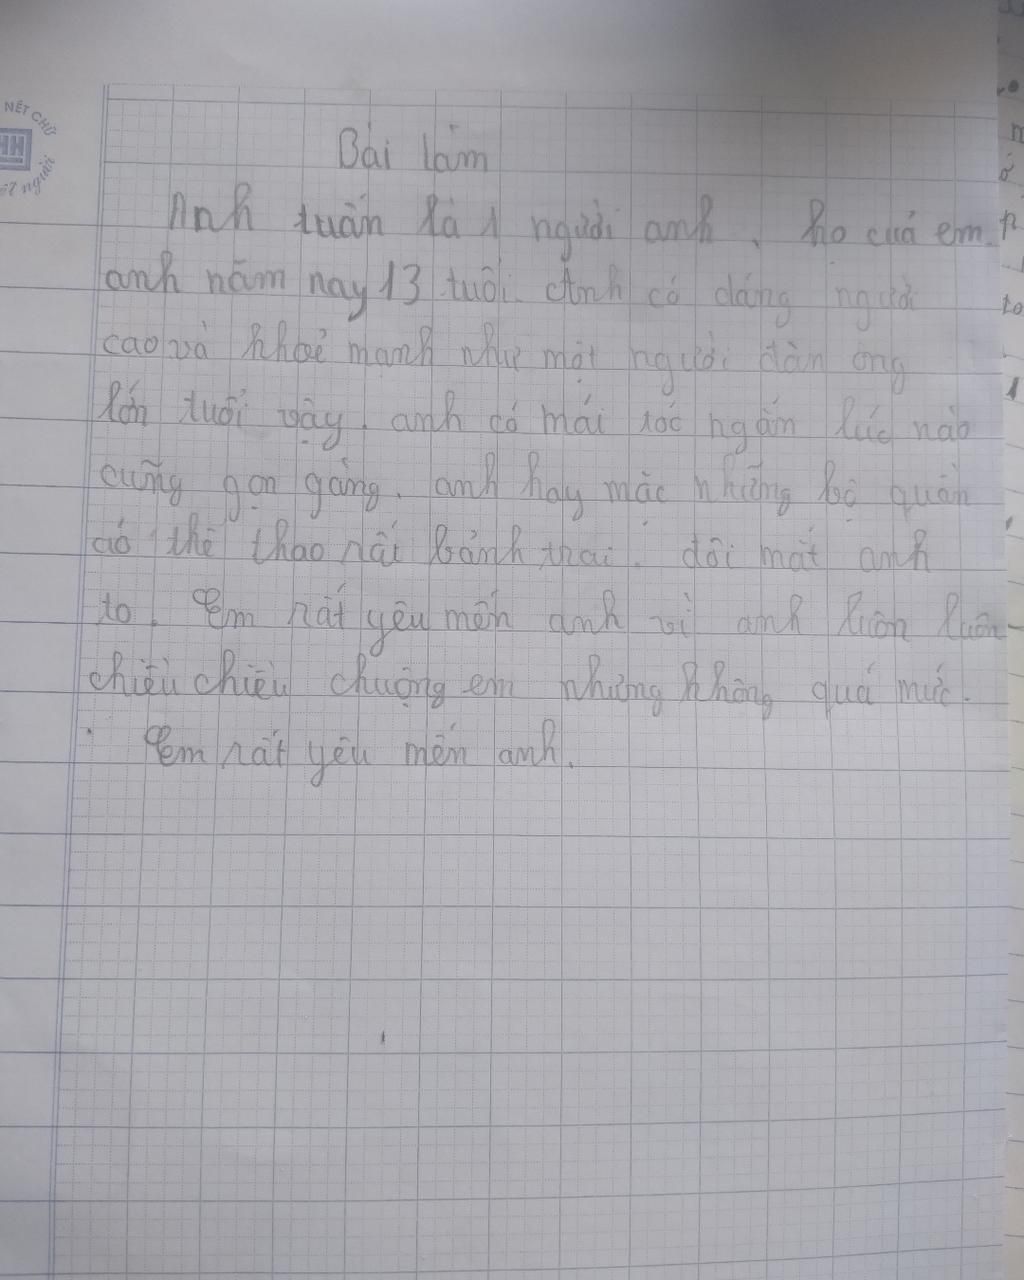 NÉT CHỮ
HH
nết người
Bài làm
Anh tuấn là 1 người anh . họ của em.
anh năm nay 13 tuổi. Anh có dáng người
cao và khoẻ mạnh như một người đàn ông
lớn tuổi vậy. anh có mái tóc ngắn lúc nào
cũng gọn gàng. anh hay mặc những bộ quần
áo thể thao rất bảnh trai. đôi mắt anh
to. Em rất yêu mến anh vì anh luôn luôn
chiều chiều chuộng em nhưng không quá mức.
Em rất yêu mến anh.